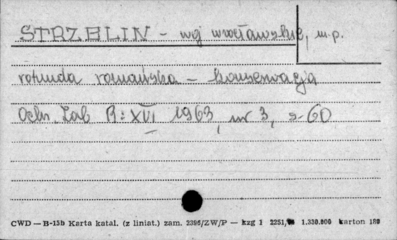 STRZELIN - woj wrocławskie, m.p.
rotunda romańska - konserwacja
Ochr Zab R: XVI 1963, nr 3, s-60
CWD — B-15b Karta katal. (z liniat.) zam. 3396/ZW/P — kzg 1 2251, 1.330.000 karton 180